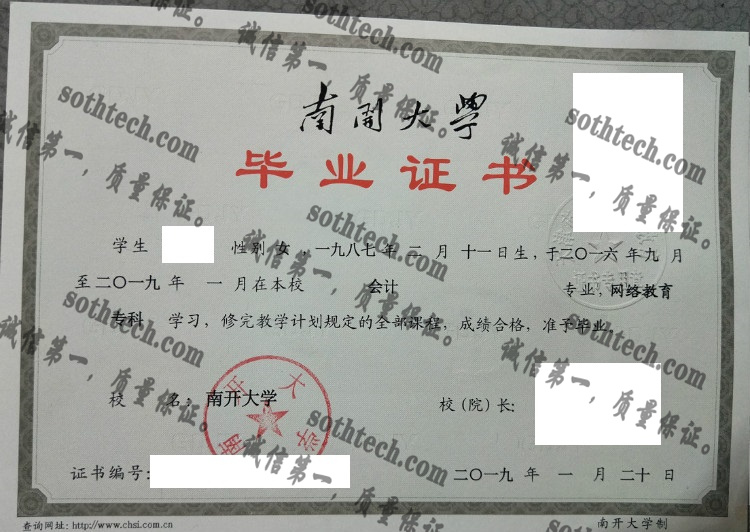 南開大學
毕业证书
学生 性别 女 ,一九八七年 二 月 十一日生,于二〇一六年九 月
至二〇一九 年 一 月在本校 会计 专业,网络教育
专科 学习,修完教学计划规定的全部课程,成绩合格,准予毕业。
校 名:南开大学
校(院)长:
南开大学
证书编号:
二〇一九 年 一 月 二十 日
查询网址:http://www.chsi.com.cn
南开大学制
sothtech.com
诚信第一,质量保证。
sothtech.com
诚信第一,质量保证。
sothtech.com
诚信第一,质量保证。
sothtech.com
诚信第一,质量保证。
sothtech.com
诚信第一,质量保证。
sothtech.com
诚信第一,质量保证。
sothtech.com
诚信第一,质量保证。
sothtech.com
诚信第一,质量保证。